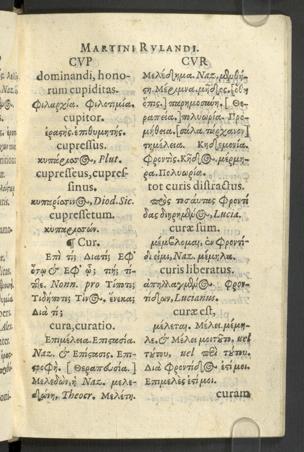 MARTINI RVLANDI.
CVP
dominandi, hono-
rum cupiditas.
Φιλαρχία. Φιλοτιμία.
cupitor.
ἐραςὴς, ἐπιθυμητής.
cupressus.
κυπάρισσος, Plut.
cupresseus, cupres-
sinus.
κυπαρίσσινος, Diod. Sic.
cupressetum.
κυπαρισσών.
¶ Cur.
Ἐπὶ τί; Διατί; Ἐφ'
ὅτῳ & Ἐφ' ᾧ; τίη; τί-
πτε. Nonn. pro Τίποτε;
Τιδήποτε; Τίνος ἕνεκα;
Διὰ τί;
cura, curatio.
Ἐπιμέλεια. Ἐπιστασία.
Naz. & Ἐπίστασις. Ἐπι-
στροφή. [Θεραπουσία.]
Μελεδών, ἢ Naz. μελε-
δώνη, Theocr. Μελέτη.
CVR
Μελέδημα. Naz.
ση. Μέριμνα.
παρημοσύνη. [Θε-
ραπεία.] πολυωρία. Προ-
μήθεια.
τημέλεια. Κηδεμονία.
Φροντίς. Κῆδος. μέρμη-
ρα. Πολυωρία.
tot curis distractus.
πρὸς τοσαύτας φροντί
δας διῃρημένος, Lucia.
curæ sum.
μέμβλομαι, ἐν Φροντί-
δι εἰμι, Naz. μέμηλα.
curis liberatus.
ἀπηλλαγμένος Φρον-
τίδων, Lucianus.
curæ est.
μέλεται. Μέλει. μέμη-
λε. & Μέλει μοι τῦτο, uel
τύτου, uel πεὶ τύτου.
Διὰ Φροντίδος ἐςί μοι.
Ἐπιμελές ἐςί μοι.
curam